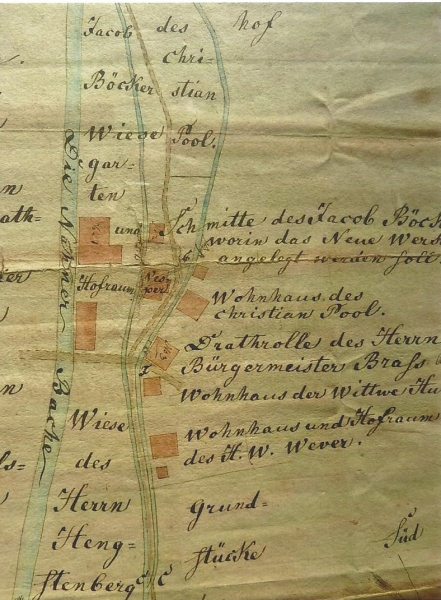 Jacob des hof
chri-
Böcker stian
Wiese Pool.
gar-
ten
ath-
und Schmitte des Jacob Böck
worin das Neue Werk
angelegt werden soll
Hofraum
Wohnhaus des
christian Pool.
Drathrolle des Herrn
Bürgermeister Brass
Wohnhaus der Wittwe Hu
Wohnhaus und Hofraum
des H. W. Wever.
Die Nahmer Bache
Wiese
des
Herrn Grund-
Heng- stücke Süd
stenberg